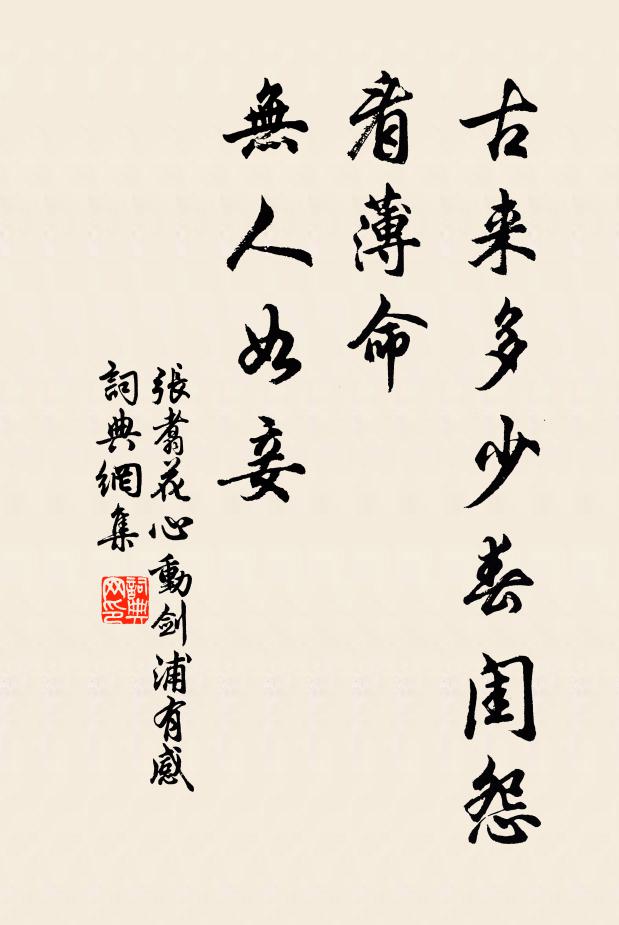 古来多少春闺怨
看薄命
無人如妾
張翥花心動劍浦有感
詞典網集
詞典网印